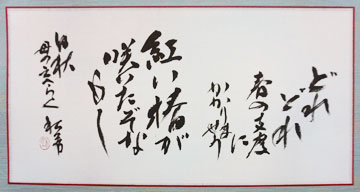 どれ
どれ
春の支度
に
かかりませう
紅い椿が
咲いたぞな
もし
母の云へらく